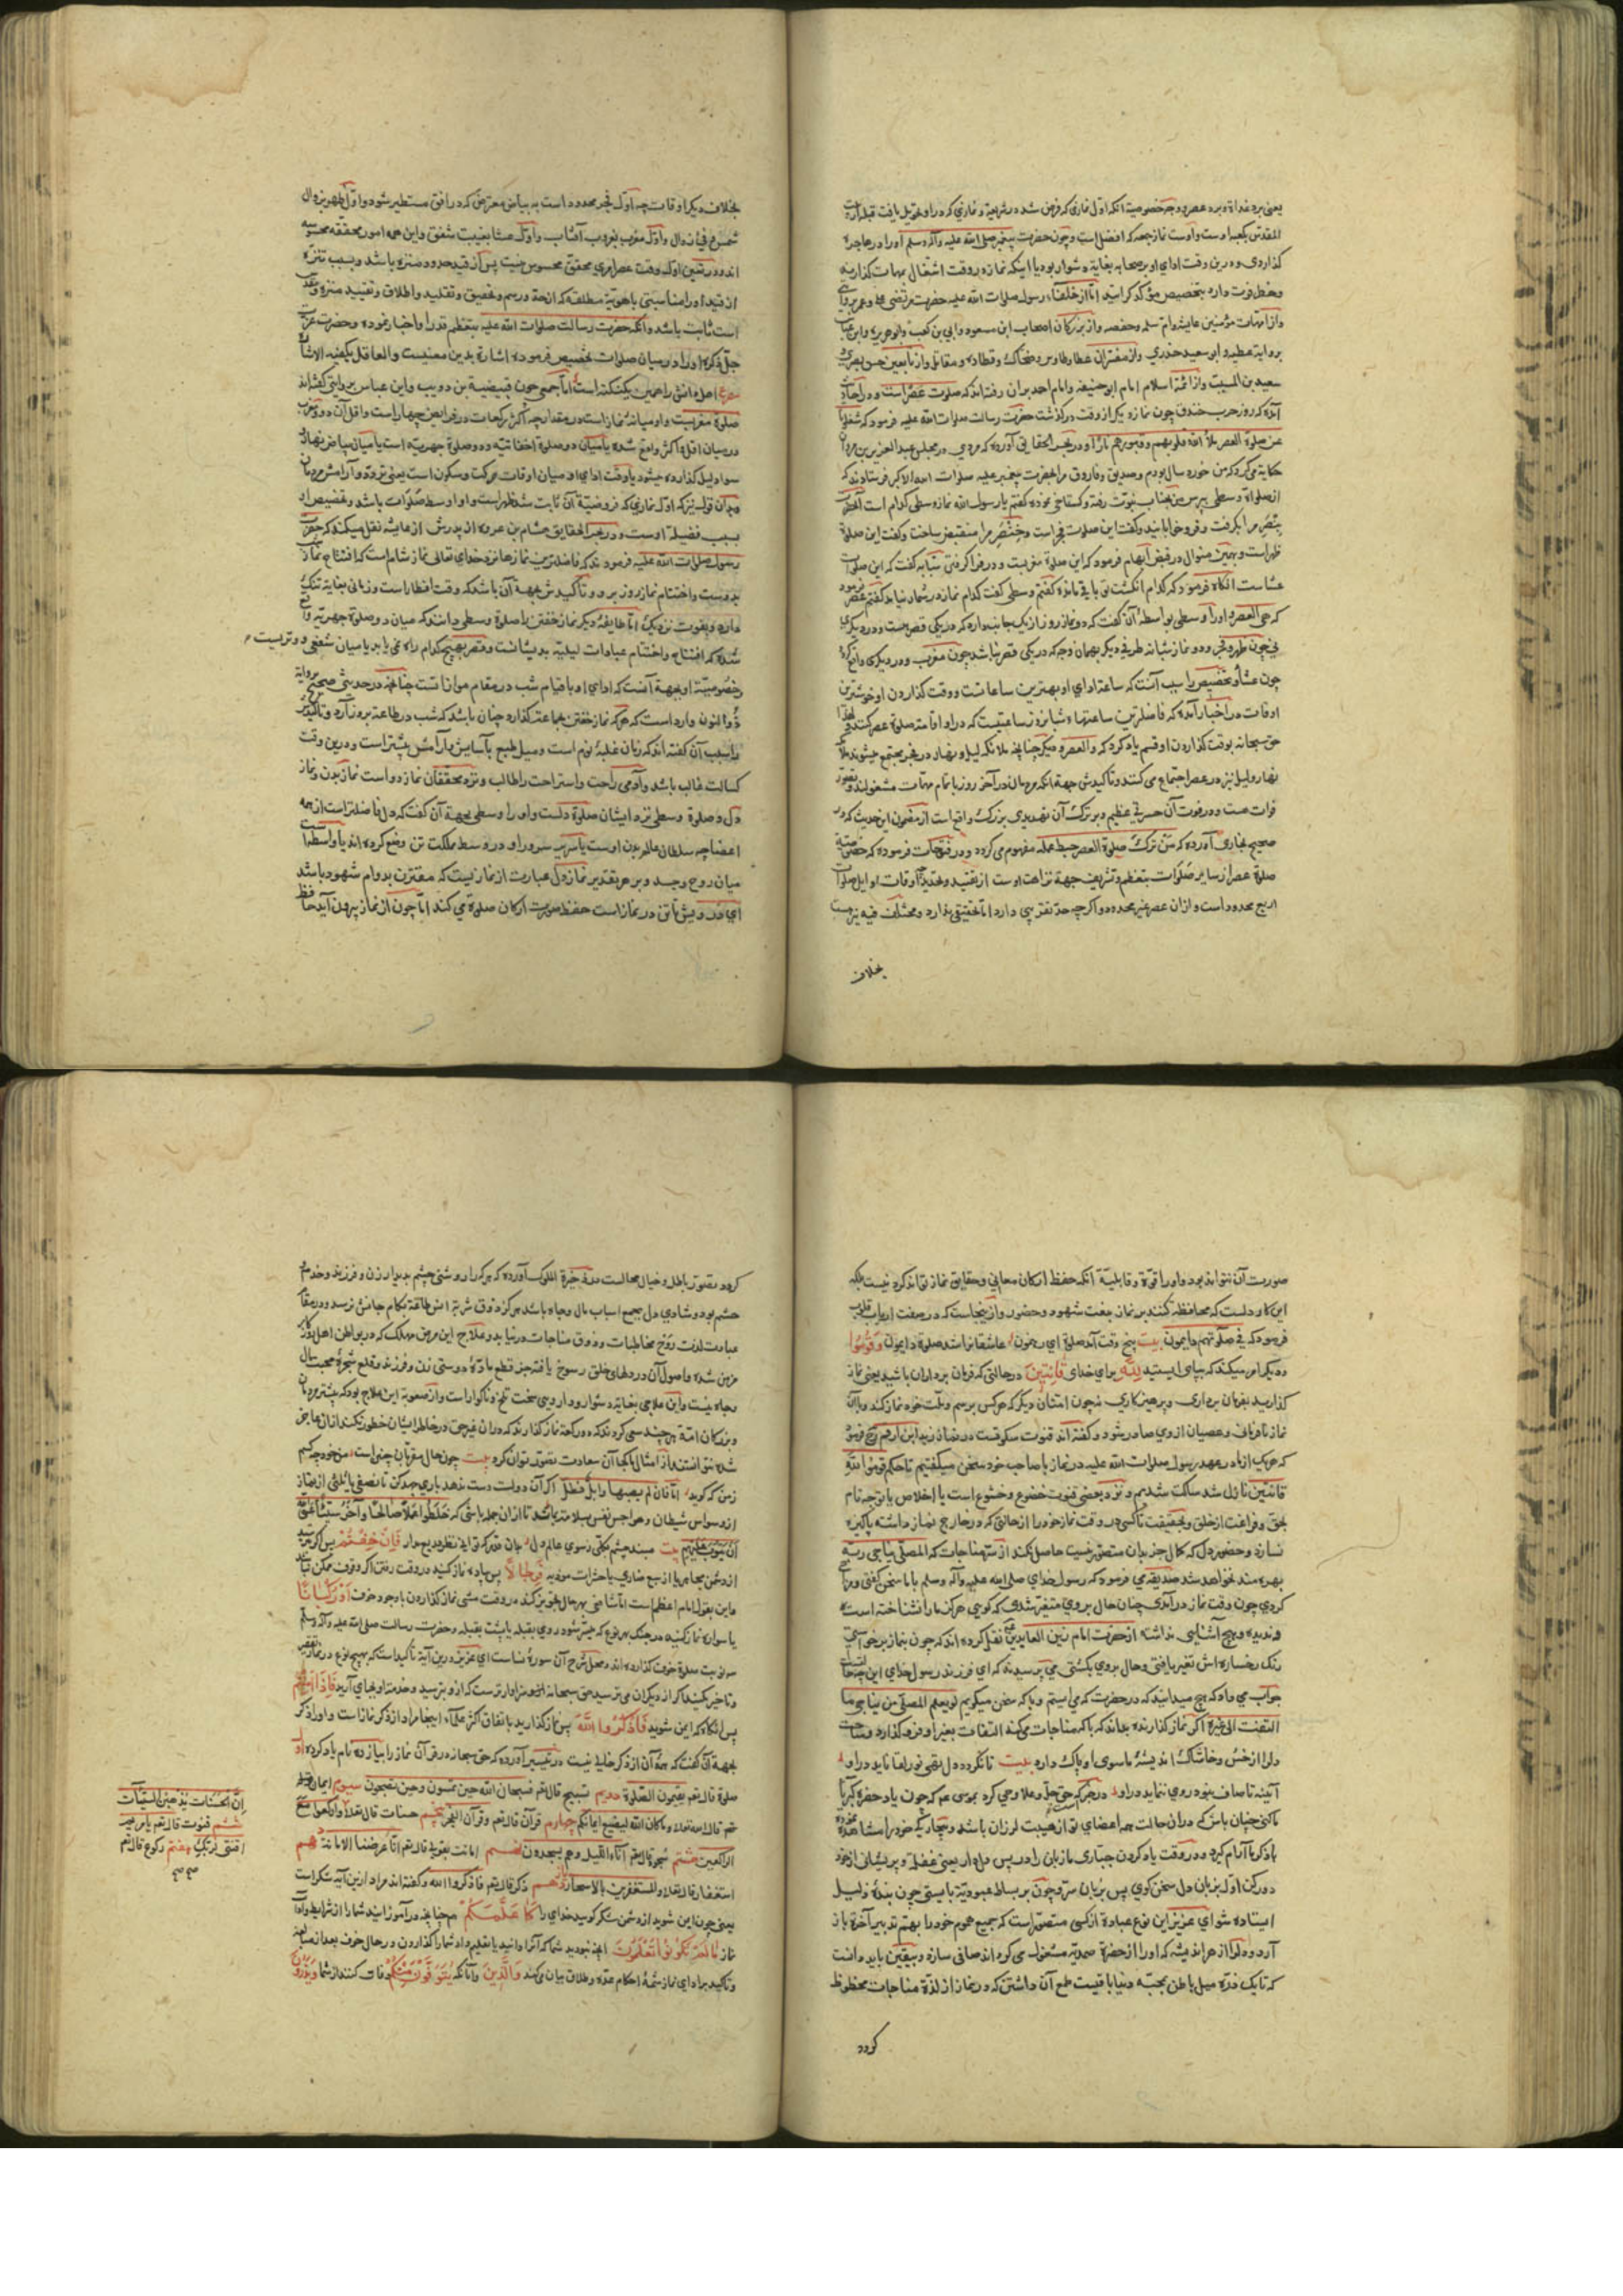 یعنی برد غداة و برد عصر و وجه خصوصیة آنکه اول نمازی که فرض شد در شریعة و نمازی که درو تحویل یافت قبله از بیت
المقدس بکعبه اوست و اوست نماز جمعه که افضل است و چون حضرت پیغمبر صلی الله علیه وآله وسلم او را در هاجره
گذاردی و درین وقت ادای او بر صحابه بغایة دشوار بود یا اینکه نماز در وقت اشتغال بمهمات گذارند
و از امهات مؤمنین عایشه و ام سلمه و حفصه و از بزرگان اصحاب ابن مسعود و ابی بن کعب و ابو هریره و ابن عباس
بروایة عطیه و ابو سعید خدری و از مفسران عطا و طاوس و ضحاک و قطاده و مقاتل و از تابعین حسن بصری و
سعید بن المسیب و از ائمة اسلام امام ابو حنیفه و امام احمد بران رفته‌اند که صلوت عصر است و در احادیث
آمده که روز حرب خندق چون نماز دیگر از وقت درگذشت حضرت رسالت صلوات الله علیه فرمود که شغلونا
عن صلوة العصر ملأ الله قلوبهم و قبورهم نارا و در بحر الحقایق آورده که مردی در مجلس عبد العزیز بن مروان
حکایة می‌کرد که من خورد سال بودم و صدیق و فاروق مرا بحضرت پیغمبر علیه صلوات الله الاکبر فرستادند که
از صلواة وسطی پرس من بجناب نبوت رفته و گستاخی نموده گفتم یا رسول الله نماز وسطی کدام است آنحضرت
بنصر مرا بگرفت و فرو خوابانید و گفت این صلوت فجر است و خنصر مرا منقبض ساخت و گفت این صلوة
ظهر است و بهمین منوال در قبض ابهام فرمود که این صلوة مغربست و در فرا گرفتن سبابه گفت که این صلوت
عشاست انگاه فرمود که کدام انگشت تو باقی مانده گفتم وسطی گفت کدام نماز در شمار نیامد گفتم عصر فرمود
که هی العصر و او را وسطی بواسطه آن گفت که دو نماز روز از یک جانب دارد که در یکی قصر هست و در دیگری
نی چون ظهر و فجر و دو نماز شبانه طرفی دیگر بهمان وجه که در یکی قصر نباشد چون مغرب و در دیگری واقع گردد
چون عشا و تخصیص را سبب آنست که ساعة ادای او بهترین ساعاتست و وقت گذاردن او خوشترین
اوقات در اخبار آمده که فاضلترین ساعتها شبانروز ساعتیست که درو اقامة صلوة عصر کنند و لهذا
حق سبحانه بوقت گذاردن او قسم یاد کرد که والعصر و دیگر چنانچه ملائکه لیل و نهار در فجر مجتمع میشوند ملائکه
نهار و لیل نیز در عصر اجتماع می کنند و تاکیدش جهة آنکه مردمان در آخر روز باتمام مهمات مشغولند و تصور
فوات هست و در فوت آن حسرتی عظیم و بر ترک آن تهدیدی بزرگ واقع است از مضمون این حدیث که در
صحیح بخاری آورده که من ترک صلوة العصر حبط عمله مفهوم می گردد و در فتوحات فرموده که خصوصیة
صلوة عصر از سایر صلوات بتعظیم و تشریف جهة نزاهت اوست از تقیید و تحدید اوقات اوایل صلوات
اربع محدود است و ازان عصر غیر محدود و اگرچه حد تقریبی دارد اما تحقیقی ندارد و مختلف فیه نیز هست
بخلاف
بخلاف دیگر اوقات چه اول فجر محدود است به بیاض معترض که در افق مستطیر شود و اول ظهر بزوال
شمس و فی زوال و اول مغرب بغروب آفتاب و اول عشا بغیبت شفق و این همه امور محققه محسوسه
اند و در تعیین اول وقت عصر امری محقق محسوس نیست پس از قید حدود منزه باشد و بسبب تنزه
از قید او را مناسبتی با هویة مطلقه که از حد و رسم و تحقیق و تقلید و اطلاق و تقیید منزه و مقدس
است ثابت باشد و آنکه حضرت رسالت صلوات الله علیه بتعظیم قدر او اخبار نموده و حضرت عزت
جل ذکره او را در میان صلوات تخصیص فرموده اشارة بدین معنیست والعاقل یکفیه الاشارة
مصرع اهل دانش را همین یک نکته است اما جمعی چون قبیصة بن ذویب و ابن عباس بروایتی گفته‌اند
صلوة مغربست و او میانه نماز است در مقدار چه اکثر رکعات در فرایض چهار است و اقل آن دو و مغرب
در میان اقل و اکثر واقع شده یا میان دو صلوة اخفائیه و دو صلوة جهریه است یا میان بیاض نهار و
سواد لیل گذارده میشود یا وقت ادای او میان اوقات حرکت و سکون است یعنی تردد و آرامش مردمان
بسبب فضیلة اوست و در بحر الحقایق هشام بن عروه از پدرش از عایشه نقل میکند که حضرت
رسول صلوات الله علیه فرمودند که فاضلترین نمازها نزد خدای تعالی نماز شام است که افتتاح نماز شب
بدوست و اختتام نماز روز برو و تاکیدش بجهة آن باشد که وقت افطار است و زمانی بغایة تنگ
دارد و بفوت نزدیک اما طایفه دیگر نماز خفتن را صلوة وسطی دانند که میان دو صلوة جهریة واقع
شده که افتتاح و اختتام عبادات لیلیه بدیشانست و قصر بهیچ کدام راه نمی یابد یا میان شفعی و وتریست
و خصوصیة او بجهة آنست که ادای او با قیام شب در مقام موازاتست چنانچه در حدیثی صحیح بروایة
ذو النون وارد است که هر که نماز خفتن بجماعة گذارد چنان باشد که شب در طاعة بروز آرد و تاکیدش
را سبب آن گفته اند که زمان غلبة نوم است و میل طبع بآسایش و آرامش بیشتر است و درین وقت
کسالت غالب باشد و آدمی راحت و استراحت را طالب و نزد محققان نماز دو است نماز بدن و نماز
دل و صلوة وسطی نزد ایشان صلوة دلست و او را وسطی بجهة آن گفت که دل فاضلتر است از همه
اعضا چه سلطان عالم بدن اوست یا سریر سرور او در وسط مملکت تن وضع کرده اند یا واسطه است
میان روح و جسد و بر هر تقدیر نماز دل عبارت از نماز نیست که مقترن بدوام شهود باشد
ای درویش تا تن در نماز است حفظ صورت ارکان صلوة می کند اما چون از نماز بیرون آید حافظ
صورت آن نتواند بود و او را قوة و قابلیة آنکه حفظ ارکان معانی و حقایق نماز تواند کرد نیست بلکه
این کار دلست که محافظه کنند بر نماز بنعت شهود و حضور و از ینجاست که در صفت ارباب قلوب
فرمود که فی صلوتهم دایمون بیت پنج وقت آمد صلوة ای رهنمون عاشقانرا شد صلوة دایمون وَقُومُوا
و دیگر امر میکند که بپای ایستید لِلَّهِ برای خدای قانِتِینَ در حالتی که فرمان برداران باشید یعنی نماز
گذارید بفرمان برداری و پرهیزکاری نه چون امتان دیگر که هرکس برسم و ملت خود نماز کند و با آن
نماز نافرمانی و عصیان از وی صادر شود و گفته اند قنوت سکوتست در نماز زید ابن ارقم رضی فرمود
که هر یک از ما در عهد رسول صلوات الله علیه در نماز با صاحب خود سخن میگفتیم تا حکم قوموا لله
قانتین نازل شد ساکت شدیم و نزد بعضی قنوت خضوع و خشوع است یا اخلاص یا توجه تام
بحق و فراغت از خلق و بحقیقت تا کسی در وقت نماز خود را از حالتی که در خارج نماز داشته پاکیزه
نسازد و حضور دل که کمال جز بدان متصور نیست حاصل نکند از سر مناجات که المصلی یناجی ربه
بهره مند نخواهد شد صدیقه می فرمود که رسول خدای صلی الله علیه وآله وسلم با ما سخن گفتی و مزاح
کردی چون وقت نماز درآمدی چنان حال بروی متغیر شدی که گویی هرگز ما را نشناخته است
و ندیده و هیچ آشنایی نداشته از حضرت امام زین العابدین نقل کرده اند که چون بنماز برخواستی
رنگ رخساره اش تغیر یافتی و حال بروی بگشتی می پرسیدند که ای فرزند رسول خدای این چه حالست
جواب می داد که هیچ میدانید که در حضرت که می ایستم و با که سخن میگویم لو یعلم المصلی من یناجی ما
التفت الی غیره اگر نماز گذارنده بداند که با که مناجات می کند التفات بغیر او فرو گذارد
دل را از خس و خاشاک اندیشه ماسوی او پاک دارد بیت تا نگردد دل نقی نور لقا ناید درو
آئینه تا صاف نبود روی ننماید درو در خبر که حق جل و علا وحی کرد بموسی عم که چون یاد حضرة کبریا
ما کنی چنان باش که دران حالت همه اعضای تو از هیبت لرزان باشد
با ذکر ما آرام گیرد و در وقت یاد کردن جباری ما زبان را در پس دل دار یعنی غفلة و پریشانی از خود
دور کن اول بزبان دل سخن گوی پس بزبان سر و چون بر بساط عبودیة بایستی چون بنده ذلیل
ایستاده شو ای عزیز این نوع عبادة از کسی متصور است که جمیع هموم خود را بهم تدبیر آخرة باز
آرد و دل را از هر اندیشه که او را از حضرة صمدیة مشغول می گرداند صافی سازد و بیقین باید دانست
که تا یک ذره میل باطن بجبه دنیا باقیست طمع آن داشتن که در نماز از لذة مناجات محظوظ
گردد
گردد تصور باطل و خیال محالست در ذخیرة الملوک آورده که هر کرا روشنی چشم بدیدار زن و فرزند و خدم و
حشم بود و شادی دل بجمع اسباب مال و جاه باشد هرگز ذوق شربة انس طاقة بکام جانش نرسد و در مقام
عبادت لذت روح مخاطبات و ذوق مناجات در نیابد و علاج این مرض مهلک که در بواطن اهل روزگار
مزمن شده و اصول آن در دلهای خلق رسوخ یافته جز قطع ماده دوستی زن و فرزند و قلع شجره محبت مال
و جاه نیست و این علاجی بغایة دشوار و دارویی سخت تلخ و ناگوار است و از صعوبة این علاج بود که بیشتر مردمان
و بزرگان امة هر چند سعی کردند که دو رکعة نماز گذارند که دران غیر حق در خاطر ایشان خطور نکند ازان عاجز
شده نتوانستند از امثال ما کجا آن سعادت تصور توان کرد بیت چون حال مقربان چنین است من خود چه کسم
زمن که گوید اما فان لم یصبها وابل فطل اگر آن دولت دست ندهد باری جهد کن تا نصفی یا ثلثی از نماز
از وسواس شیطان و هواجس نفس بسلامت باشد تا ازان جمله باشی که خلطوا عملا صالحا و آخر سیئا عسی الله
ان یتوب علیهم بیت فَإِنْ خِفْتُمْ پس اگر ترسید
از دشمن محارب یا از سبع ضاری یا حشرات موذیه فَرِجالاً پس پیاده نماز کنید در وقت رفتن اگر وقوف ممکن نباشد
و این بقول امام اعظم است اما شافعی بهر حال تجویز کند در وقت مشی نماز گذاردن با وجود خوف أَوْ رُکْباناً
یا سواره نماز کنید در جنگ بهر نوع که میسر شود روی بقبله یا پشت بقبله و حضرت رسالت صلی الله علیه وآله وسلم
و تاخیر مکنید اگر از دیگران می ترسید حق سبحانه و تعالی سزاوارترست که ازو بترسید و خدمة او بجای آرید فَإِذا أَمِنْتُمْ
پس انگاه که ایمن شوید فَاذْکُرُوا اللَّهَ پس نماز گذارید باتفاق اکثر علما اینجا مراد از ذکر نماز است و او را ذکر
بجهة آن گفت که همه آن از ذکر خالی نیست در تفسیر آورده که حق سبحانه در قرآن نماز را بیازده نام یاد کرده اول
صلوة قال تعم یقیمون الصلوة دویم تسبیح قال تعم فسبحان الله حین تمسون و حین تصبحون سیوم ایمان
قال تعم و ما کان الله لیضیع ایمانکم چهارم قرآن قال تعم و قرآن الفجر پنجم حسنات قال تعم وارکعوا مع
الراکعین هشتم سجود قال تعم آناء اللیل و هم یسجدون نهم امانت بقوله قال تعم انا عرضنا الامانة دهم
استغفار قال تعم والمستغفرین بالاسحار یازدهم ذکر قال تعم فاذکروا الله و گفته اند مراد ازین آیة شکر است
یعنی چون ایمن شوید از دشمن شکر گویید خدای را کَما عَلَّمَکُمْ همچنانچه در آموزانید شما را از شرایط و آداب
نماز ما لَمْ تَکُونُوا تَعْلَمُونَ آنچه نبودید شما که آنرا دانید یا تعلیم داد شما را گذاردن در حال خوف بعد از مبالغه
و تاکید بر ادای نماز شمه احکام عده و طلاق بیان می کند وَالَّذِینَ و آنانکه یُتَوَفَّوْنَ مِنْکُمْ وفات کنند از شما وَیَذَرُونَ
إنّ الحسنات یذهبن السیئات
ششم قنوت قال تعم یا مریم
اقنتی لربک هفتم رکوع قال تعم
صح صح